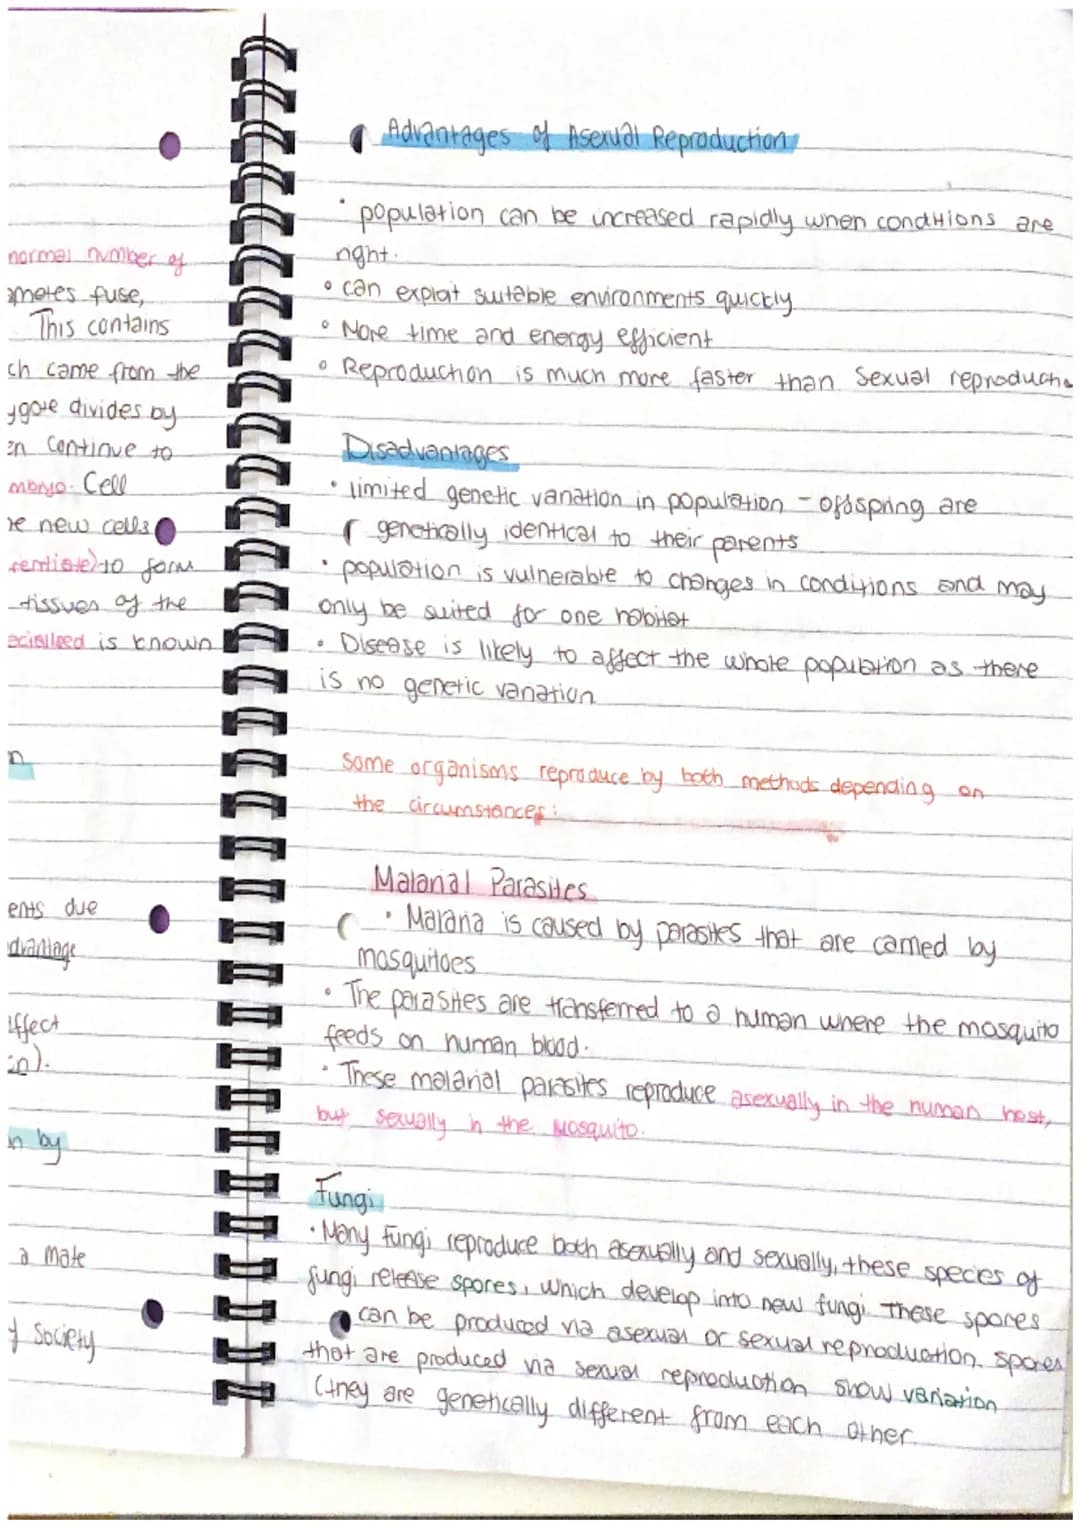 normal number of
ametes fuse,
This contains
ch came from the
ygote divides by
en continue to
mbryo. Cell
he new cells
rentiate) to form
tissues of the
ecialised is known
n
ents due
dvantage
effect
in).
n by
a mate
y society
Advantages of Asexual Reproduction
• population can be increased rapidly when conditions are
right.
• can exploit suitable environments quickly
• More time and energy efficient
• Reproduction is much more faster than Sexual reproductio
Disadvantages
• limited genetic variation in population - offspring are
genetically identical to their parents
• population is vulnerable to changes in conditions and may
only be suited for one habitat
• Disease is likely to affect the whole population as there
is no genetic variation
Some organisms reproduce by both methods depending on
the circumstances:
Malarial Parasites
• Malaria is caused by parasites that are carried by
mosquitoes
• The parasites are transferred to a human where the mosquito
feeds on human blood.
• These malarial parasites reproduce asexually in the human host,
but sexually in the Mosquito.
Fungi
• Many Fungi reproduce both asexually and sexually, these species of
fungi release spores, which develop into new fungi. These spores
can be produced via asexual or sexual reproduction. Spores
that are produced via sexual reproduction show variation
(they are genetically different from each other.